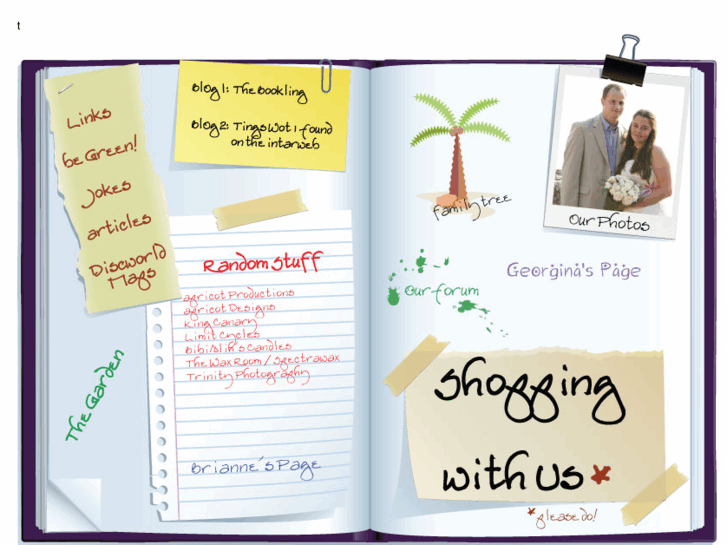 t
Links
be Green!
Jokes
articles
Discworld
Maps
Blog 1: The Bookling
Blog 2: Tings Wot I found
on the interweb
family tree
Our Photos
Random Stuff
apricot Productions
apricot Designs
King Canary
Limit Cycles
Bibi/Slik's Candles
The Wax Room / Spectrawax
Trinity Photography
Brianne's Page
The Garden
Our forum
Georgina's Page
Shopping
with us *
* please do!